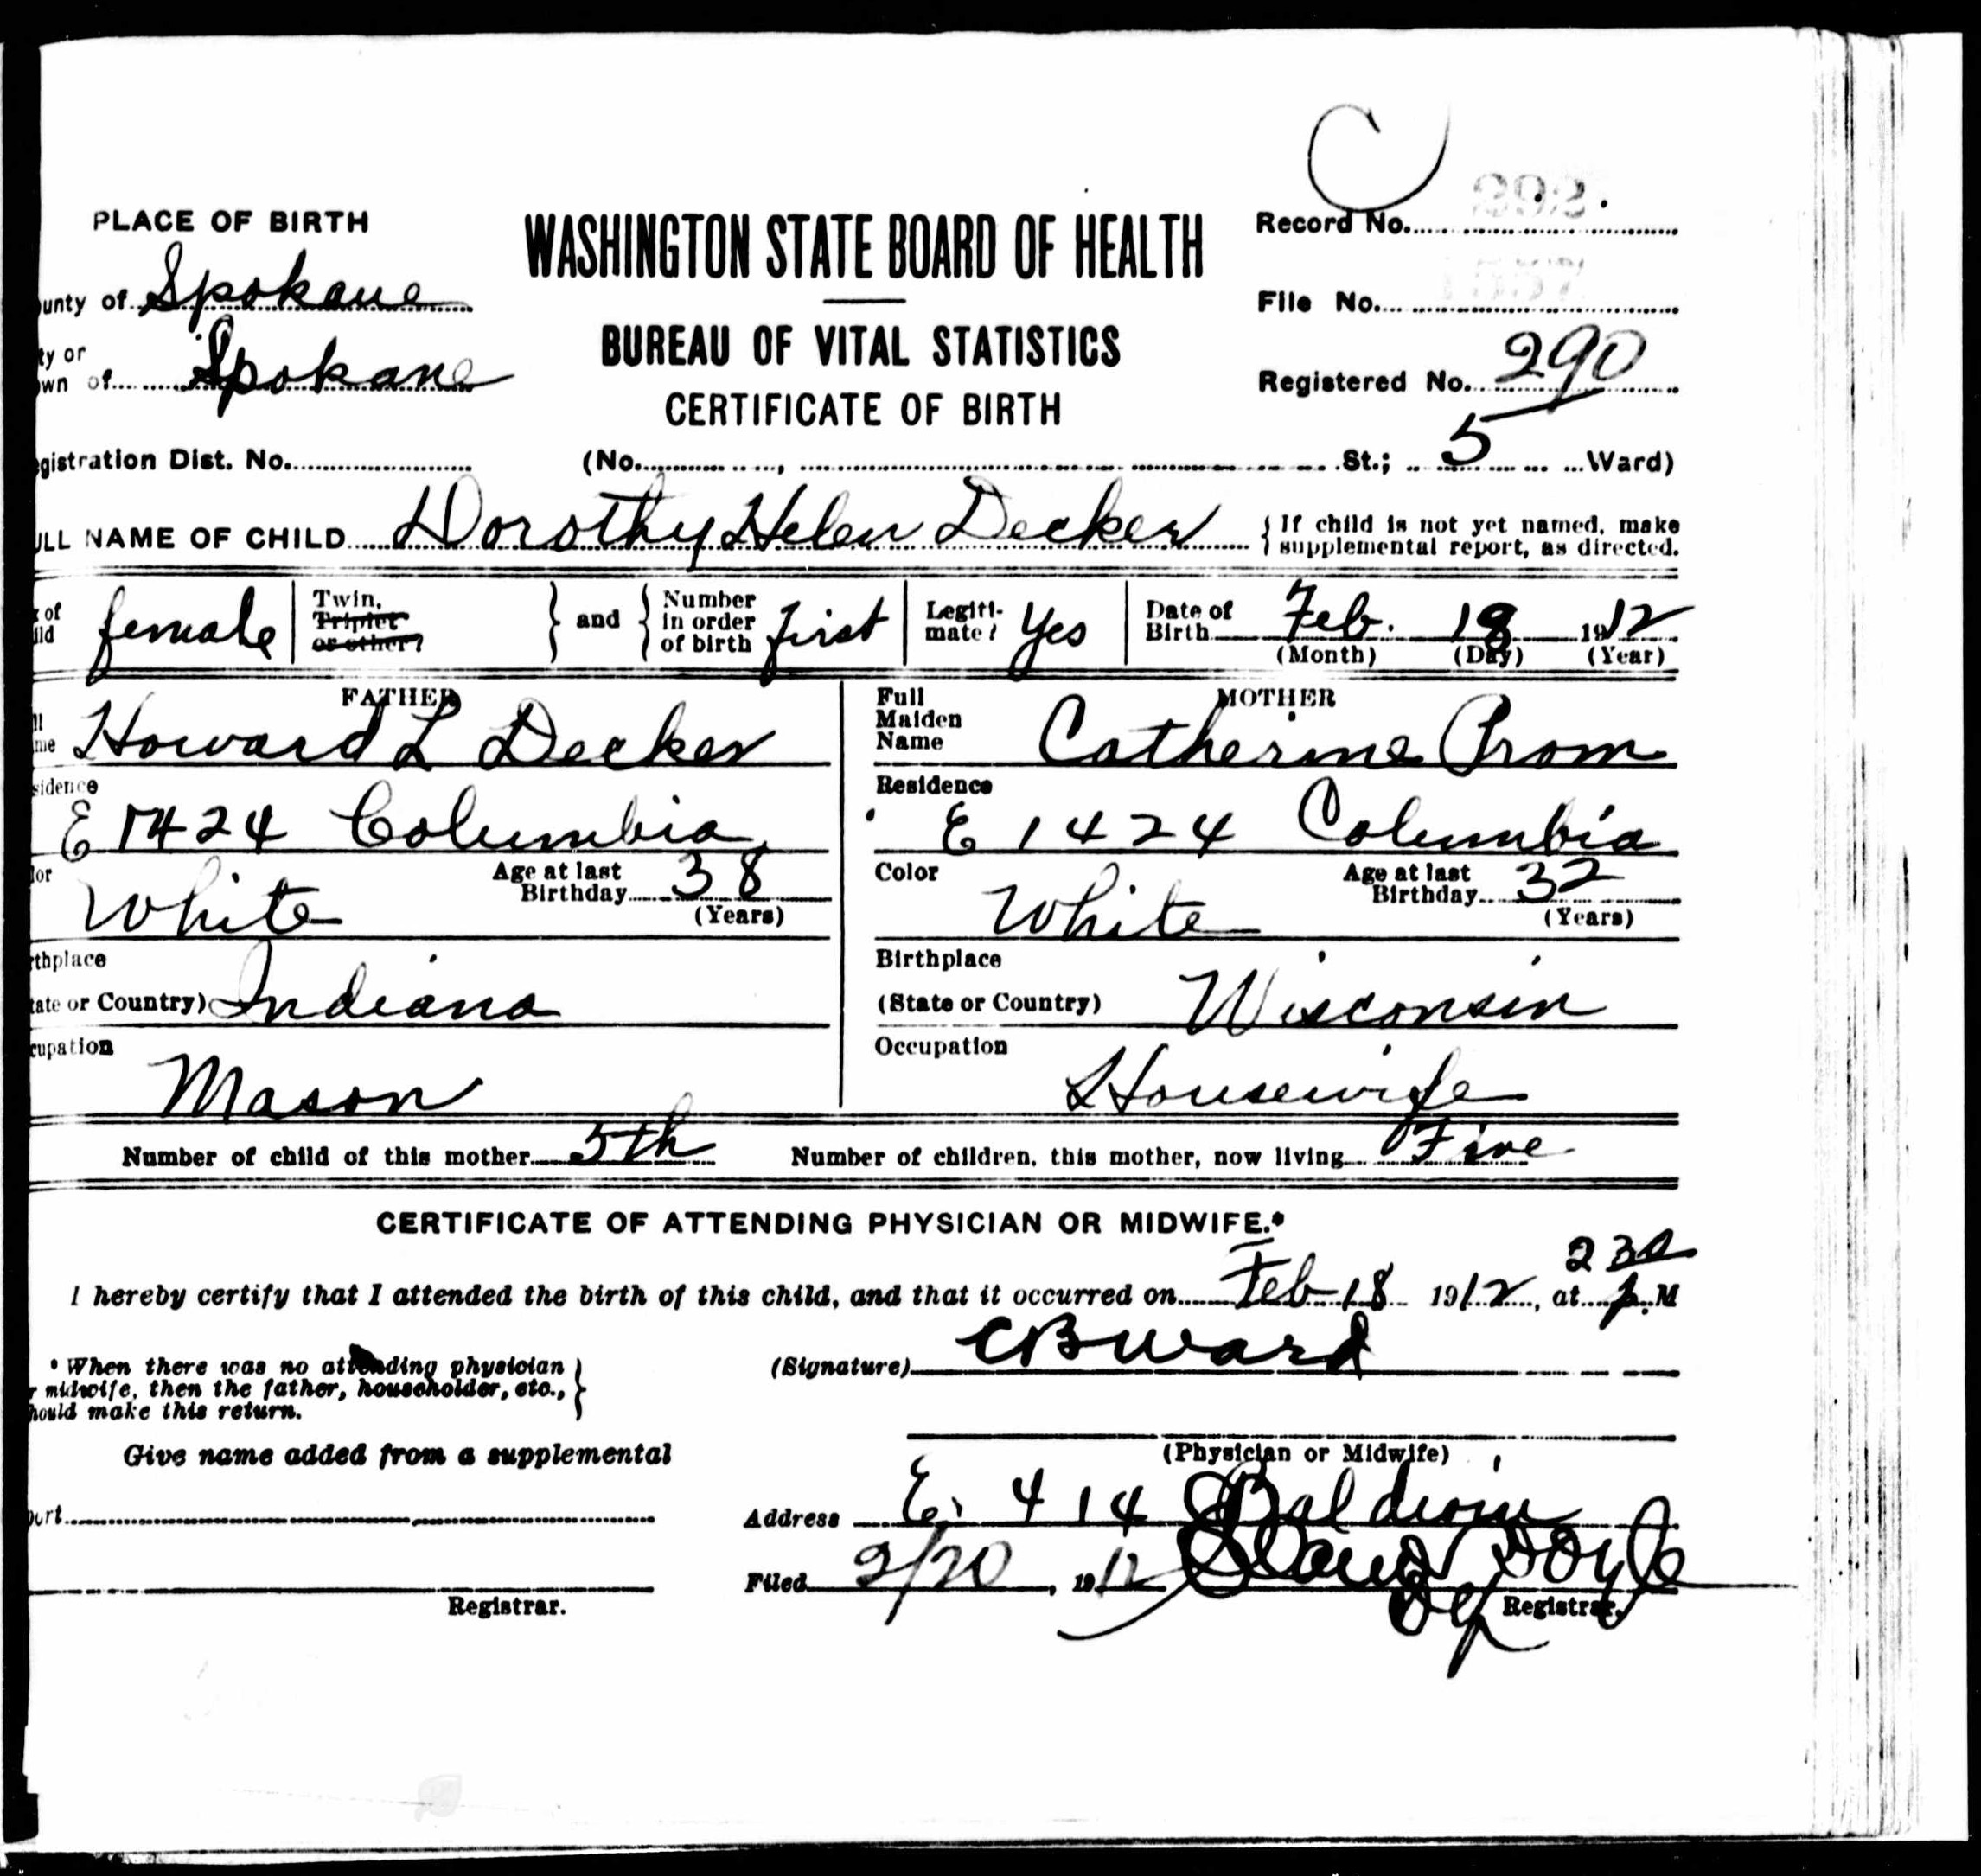 PLACE OF BIRTH
WASHINGTON STATE BOARD OF HEALTH
Record No.
unty of Spokane
File No.
BUREAU OF VITAL STATISTICS
ty or
wn of Spokane
Registered No. 290
CERTIFICATE OF BIRTH
gistration Dist. No. (No. , St.; 5 Ward)
ULL NAME OF CHILD Dorothy Helen Decker { If child is not yet named, make
supplemental report, as directed.
of
ild female
Twin,
Triplet
or other? } and { Number
in order
of birth first
Legiti-
mate? Yes
Date of
Birth Feb. 18 1912
(Month) (Day) (Year)
FATHER
me Howard L Decker
MOTHER
Full
Maiden
Name Catherine Prom
sidence
E 1424 Columbia
Residence
E 1424 Columbia
lor White
Age at last
Birthday 38
(Years)
Color White
Age at last
Birthday 32
(Years)
rthplace
tate or Country) Indiana
Birthplace
(State or Country) Wisconsin
cupation
Mason
Occupation
Housewife
Number of child of this mother 5th Number of children, this mother, now living Five
CERTIFICATE OF ATTENDING PHYSICIAN OR MIDWIFE.*
I hereby certify that I attended the birth of this child, and that it occurred on Feb 18 1912, at 230 p.M
(Signature) CB Ward
* When there was no attending physician
r midwife, then the father, householder, etc., }
hould make this return.
(Physician or Midwife)
Give name added from a supplemental
ort
Address E. 414 Baldwin
Filed 2/20, 1912 Doyle
Registrar.
Registrar.